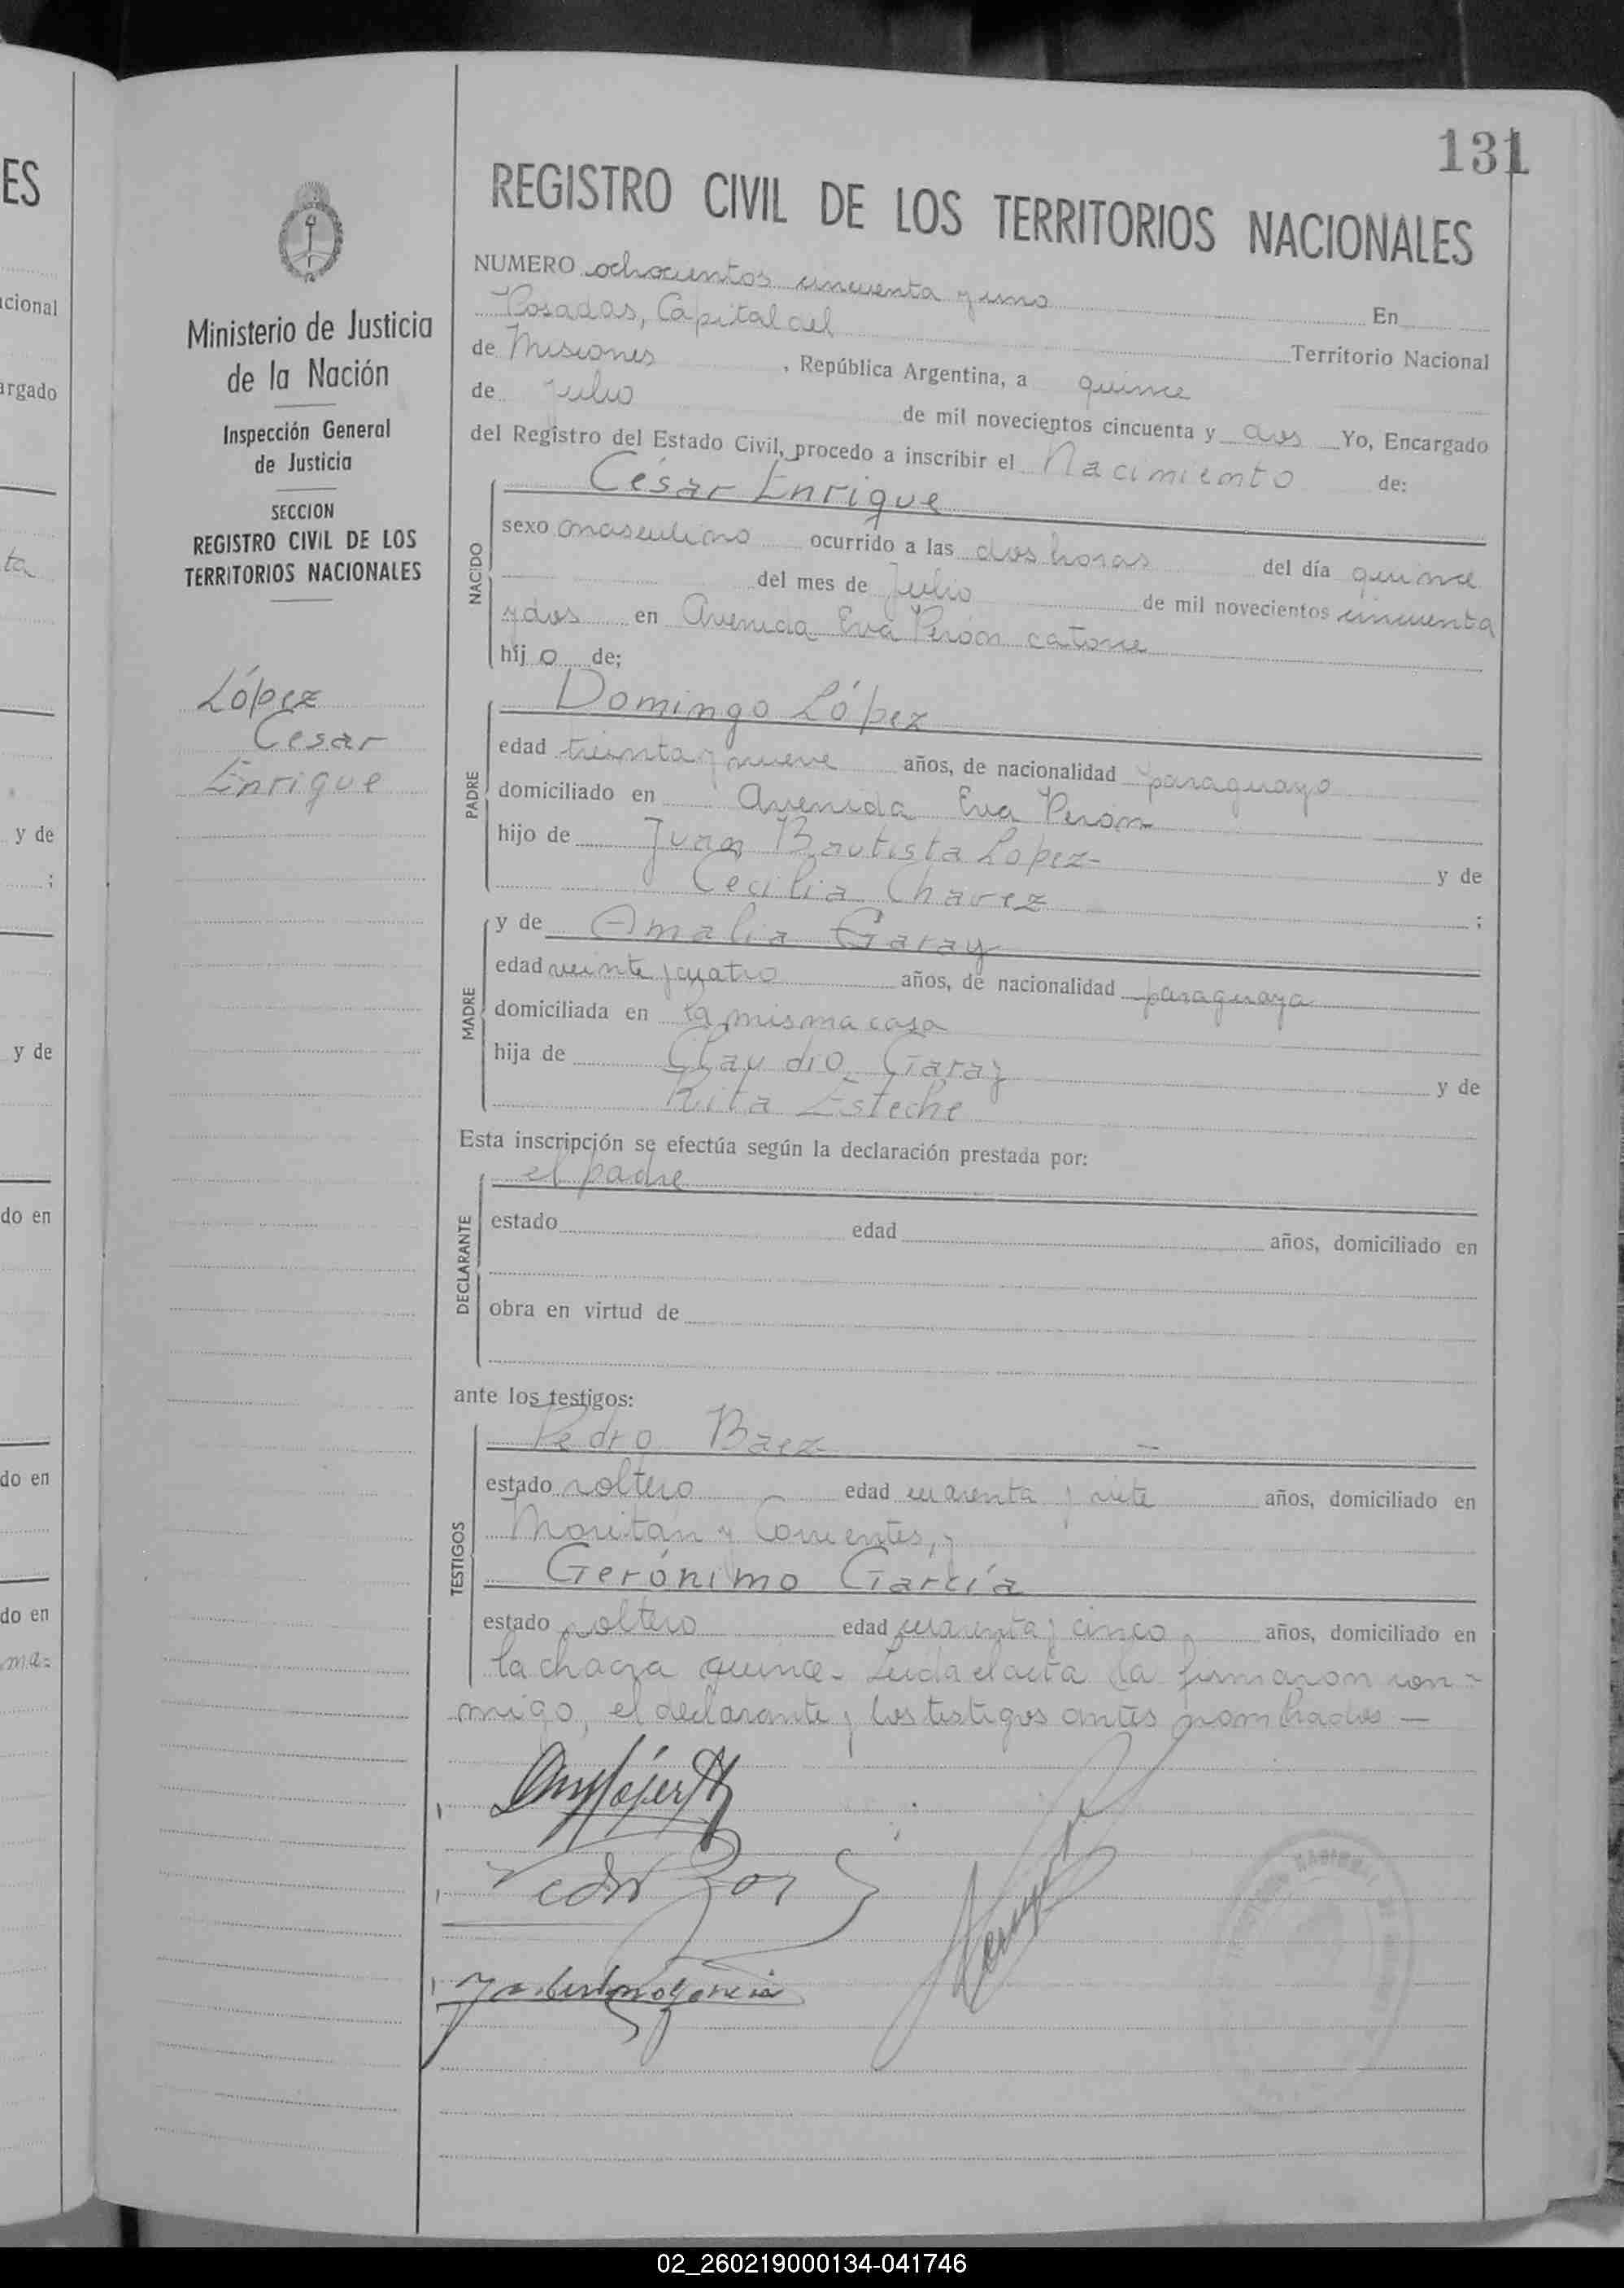 131
ES
cional
argado
ta
y de
;
y de
do en
do en
do en
ma=
Ministerio de Justicia
de la Nación
Inspección General
de Justicia
SECCION
REGISTRO CIVIL DE LOS
TERRITORIOS NACIONALES
López
Cesar
Enrique
REGISTRO CIVIL DE LOS TERRITORIOS NACIONALES
NUMERO ochocientos cincuenta y uno En
Posadas, Capital del Territorio Nacional
de Misiones, República Argentina, a quince
de Julio de mil novecientos cincuenta y dos Yo, Encargado
del Registro del Estado Civil, procedo a inscribir el Nacimiento de:
César Enrique
NACIDO
sexo masculino ocurrido a las dos horas del día quince
del mes de Julio de mil novecientos cincuenta
y dos en Avenida Eva Perón catorce
hij o de;
Domingo López
PADRE
edad treinta y nueve años, de nacionalidad paraguayo
domiciliado en Avenida Eva Peron
hijo de Juan Bautista Lopez- y de
Cecilia Chavez ;
y de Amalia Garay
MADRE
edad veinte y cuatro años, de nacionalidad paraguaya
domiciliada en la misma casa
hija de Claudio Garay y de
Rita Esteche
Esta inscripción se efectúa según la declaración prestada por:
el padre
DECLARANTE
estado edad años, domiciliado en
obra en virtud de
ante los testigos:
Pedro Baez -
TESTIGOS
estado soltero edad cuarenta y siete años, domiciliado en
y Corrientes, y
Gerónimo García
estado soltero edad cuarenta y cinco años, domiciliado en
la chacra quince- Leida el acta la firmaron con-
migo, el declarante y los testigos antes nombrados —
02_260219000134-041746